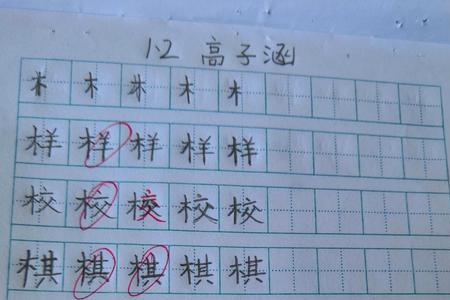 1.2 高子涵
木 木 木 木 木
样 样 样 样 样
校 校 校 校 校
棋 棋 棋 棋 棋